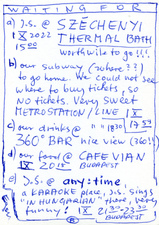 WAITING FOR
a) J.S. @ SZÉCHENYI
1 X 2022 THERMAL BATH
15:00 worthwile to go!!!
b) our subway (where??)
to go home. We could not see
where to buy tickets, so
no tickets. Very sweet
METROSTATION / LINE 1 X
c) our drinks @ "1830 17:59
360° BAR" nice view (360!!)
d) our food @ CAFE VIAN
1 X 2011 BUDAPEST
e) J.S. @ any:time:
a KARAOKE place, J.S. sings
"IN HUNGARIAN" there, very
funny! 1 X 21:30-23:30
BUDAPEST